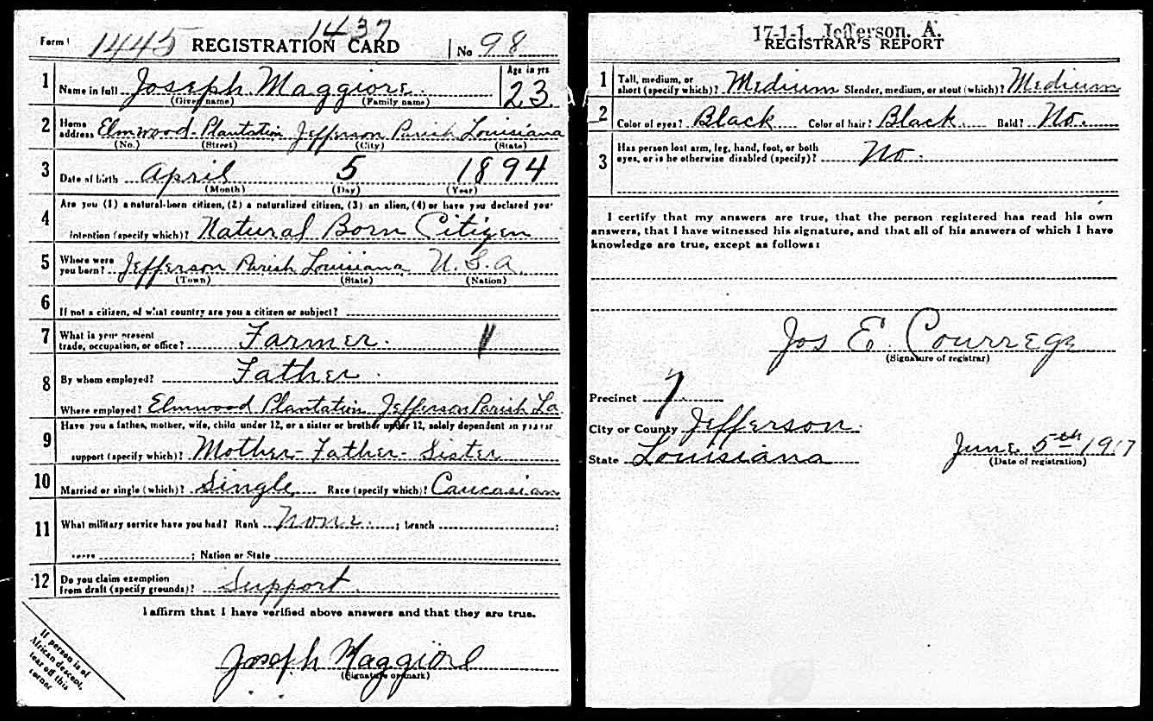 1437
Form 1 1445 REGISTRATION CARD No 98
1 Name in full Joseph Maggiore. Age in yrs 23
(Given name) (Family name)
2 Home address Elmwood-Plantation Jefferson Parish Louisiana
(No.) (Street) (City) (State)
3 Date of birth April 5 1894
(Month) (Day) (Year)
4 Are you (1) a natural-born citizen, (2) a naturalized citizen, (3) an alien, (4) or have you declared your
intention (specify which)? Natural Born Citizen
5 Where were you born? Jefferson Parish Louisiana U.S.A.
(Town) (State) (Nation)
6 If not a citizen, of what country are you a citizen or subject?
7 What is your present trade, occupation, or office? Farmer.
8 By whom employed? Father.
Where employed? Elmwood Plantation Jefferson Parish La.
9 Have you a father, mother, wife, child under 12, or a sister or brother under 12, solely dependent on your
support (specify which)? Mother-Father-Sister
10 Married or single (which)? Single Race (specify which)? Caucasian
11 What military service have you had? Rank None. ; branch ;
years ; Nation or State
12 Do you claim exemption from draft (specify grounds)? Support.
I affirm that I have verified above answers and that they are true.
Joseph Maggiore
(Signature or mark)
If person is of
African descent,
tear off this
corner
17-1-1 Jefferson. A.
REGISTRAR'S REPORT
1 Tall, medium, or short (specify which)? Medium Slender, medium, or stout (which)? Medium
2 Color of eyes? Black Color of hair? Black. Bald? No.
3 Has person lost arm, leg, hand, foot, or both
eyes, or is he otherwise disabled (specify)? No.
I certify that my answers are true, that the person registered has read his own
answers, that I have witnessed his signature, and that all of his answers of which I have
knowledge are true, except as follows:
Jos E Courrege
(Signature of registrar)
Precinct 7.
City or County Jefferson.
State Louisiana June 5th 1917
(Date of registration)